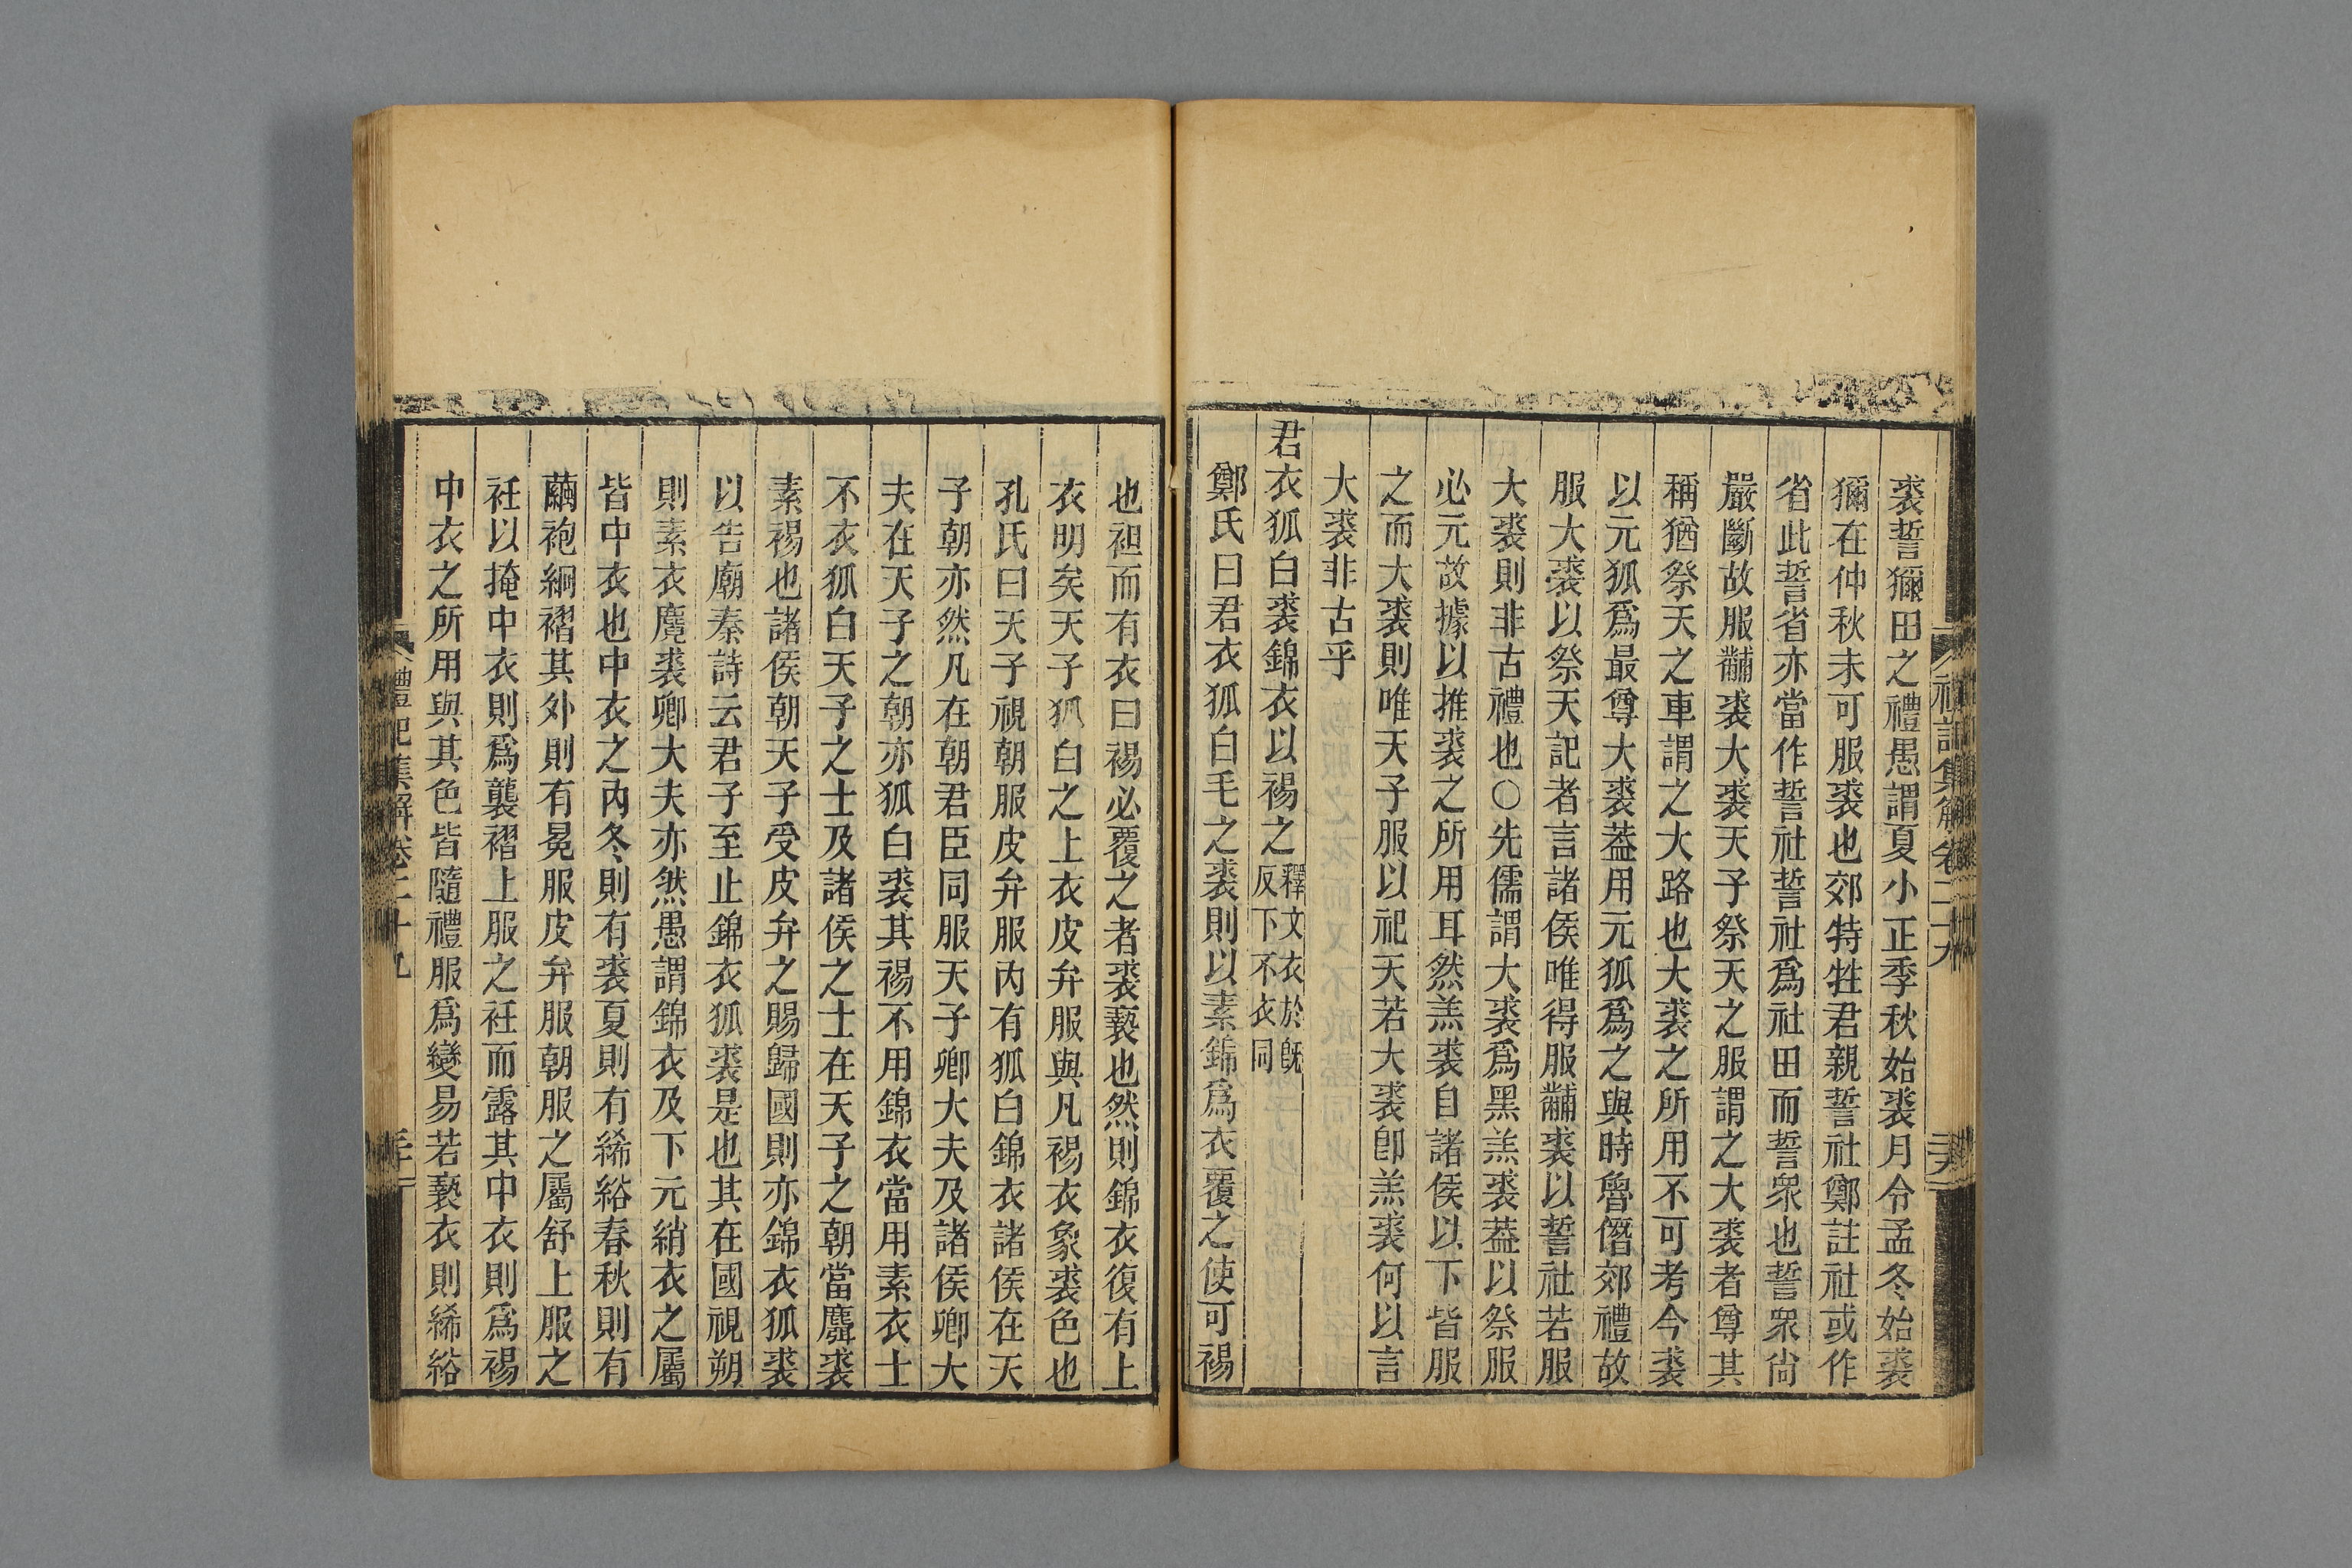 裘誓獮田之禮愚謂夏小正季秋始裘月令孟冬始裘
獮在仲秋未可服裘也郊特牲君親誓社鄭註社或作
省此誓省亦當作誓社誓社爲社田而誓衆也誓衆尙
嚴斷故服黼裘大裘天子祭天之服謂之大裘者尊其
稱猶祭天之車謂之大路也大裘之所用不可考今裘
以元狐爲最尊大裘葢用元狐爲之與時魯僭郊禮故
服大裘以祭天記者言諸侯唯得服黼裘以誓社若服
大裘則非古禮也○先儒謂大裘爲黑羔裘葢以祭服
必元故據以推裘之所用耳然羔裘自諸侯以下皆服
之而大裘則唯天子服以祀天若大裘卽羔裘何以言
大裘非古乎
君衣狐白裘錦衣以裼之釋文衣於旣反下不衣同
鄭氏曰君衣狐白毛之裘則以素錦爲衣覆之使可裼
也袒而有衣曰裼必覆之者裘褻也然則錦衣復有上
衣明矣天子狐白之上衣皮弁服與凡裼衣象裘色也
孔氏曰天子視朝服皮弁服內有狐白錦衣諸侯在天
子朝亦然凡在朝君臣同服天子卿大夫及諸侯卿大
夫在天子之朝亦狐白裘其裼不用錦衣當用素衣士
不衣狐白天子之士及諸侯之士在天子之朝當麛裘
素裼也諸侯朝天子受皮弁之賜歸國則亦錦衣狐裘
以告廟秦詩云君子至止錦衣狐裘是也其在國視朔
則素衣麑裘卿大夫亦然愚謂錦衣及下元綃衣之屬
皆中衣也中衣之內冬則有裘夏則有絺綌春秋則有
繭袍絅褶其外則有冕服皮弁服朝服之屬舒上服之
衽以掩中衣則爲襲褶上服之衽而露其中衣則爲裼
中衣之所用與其色皆隨禮服爲變易若褻衣則絺綌
禮記集解卷二十九